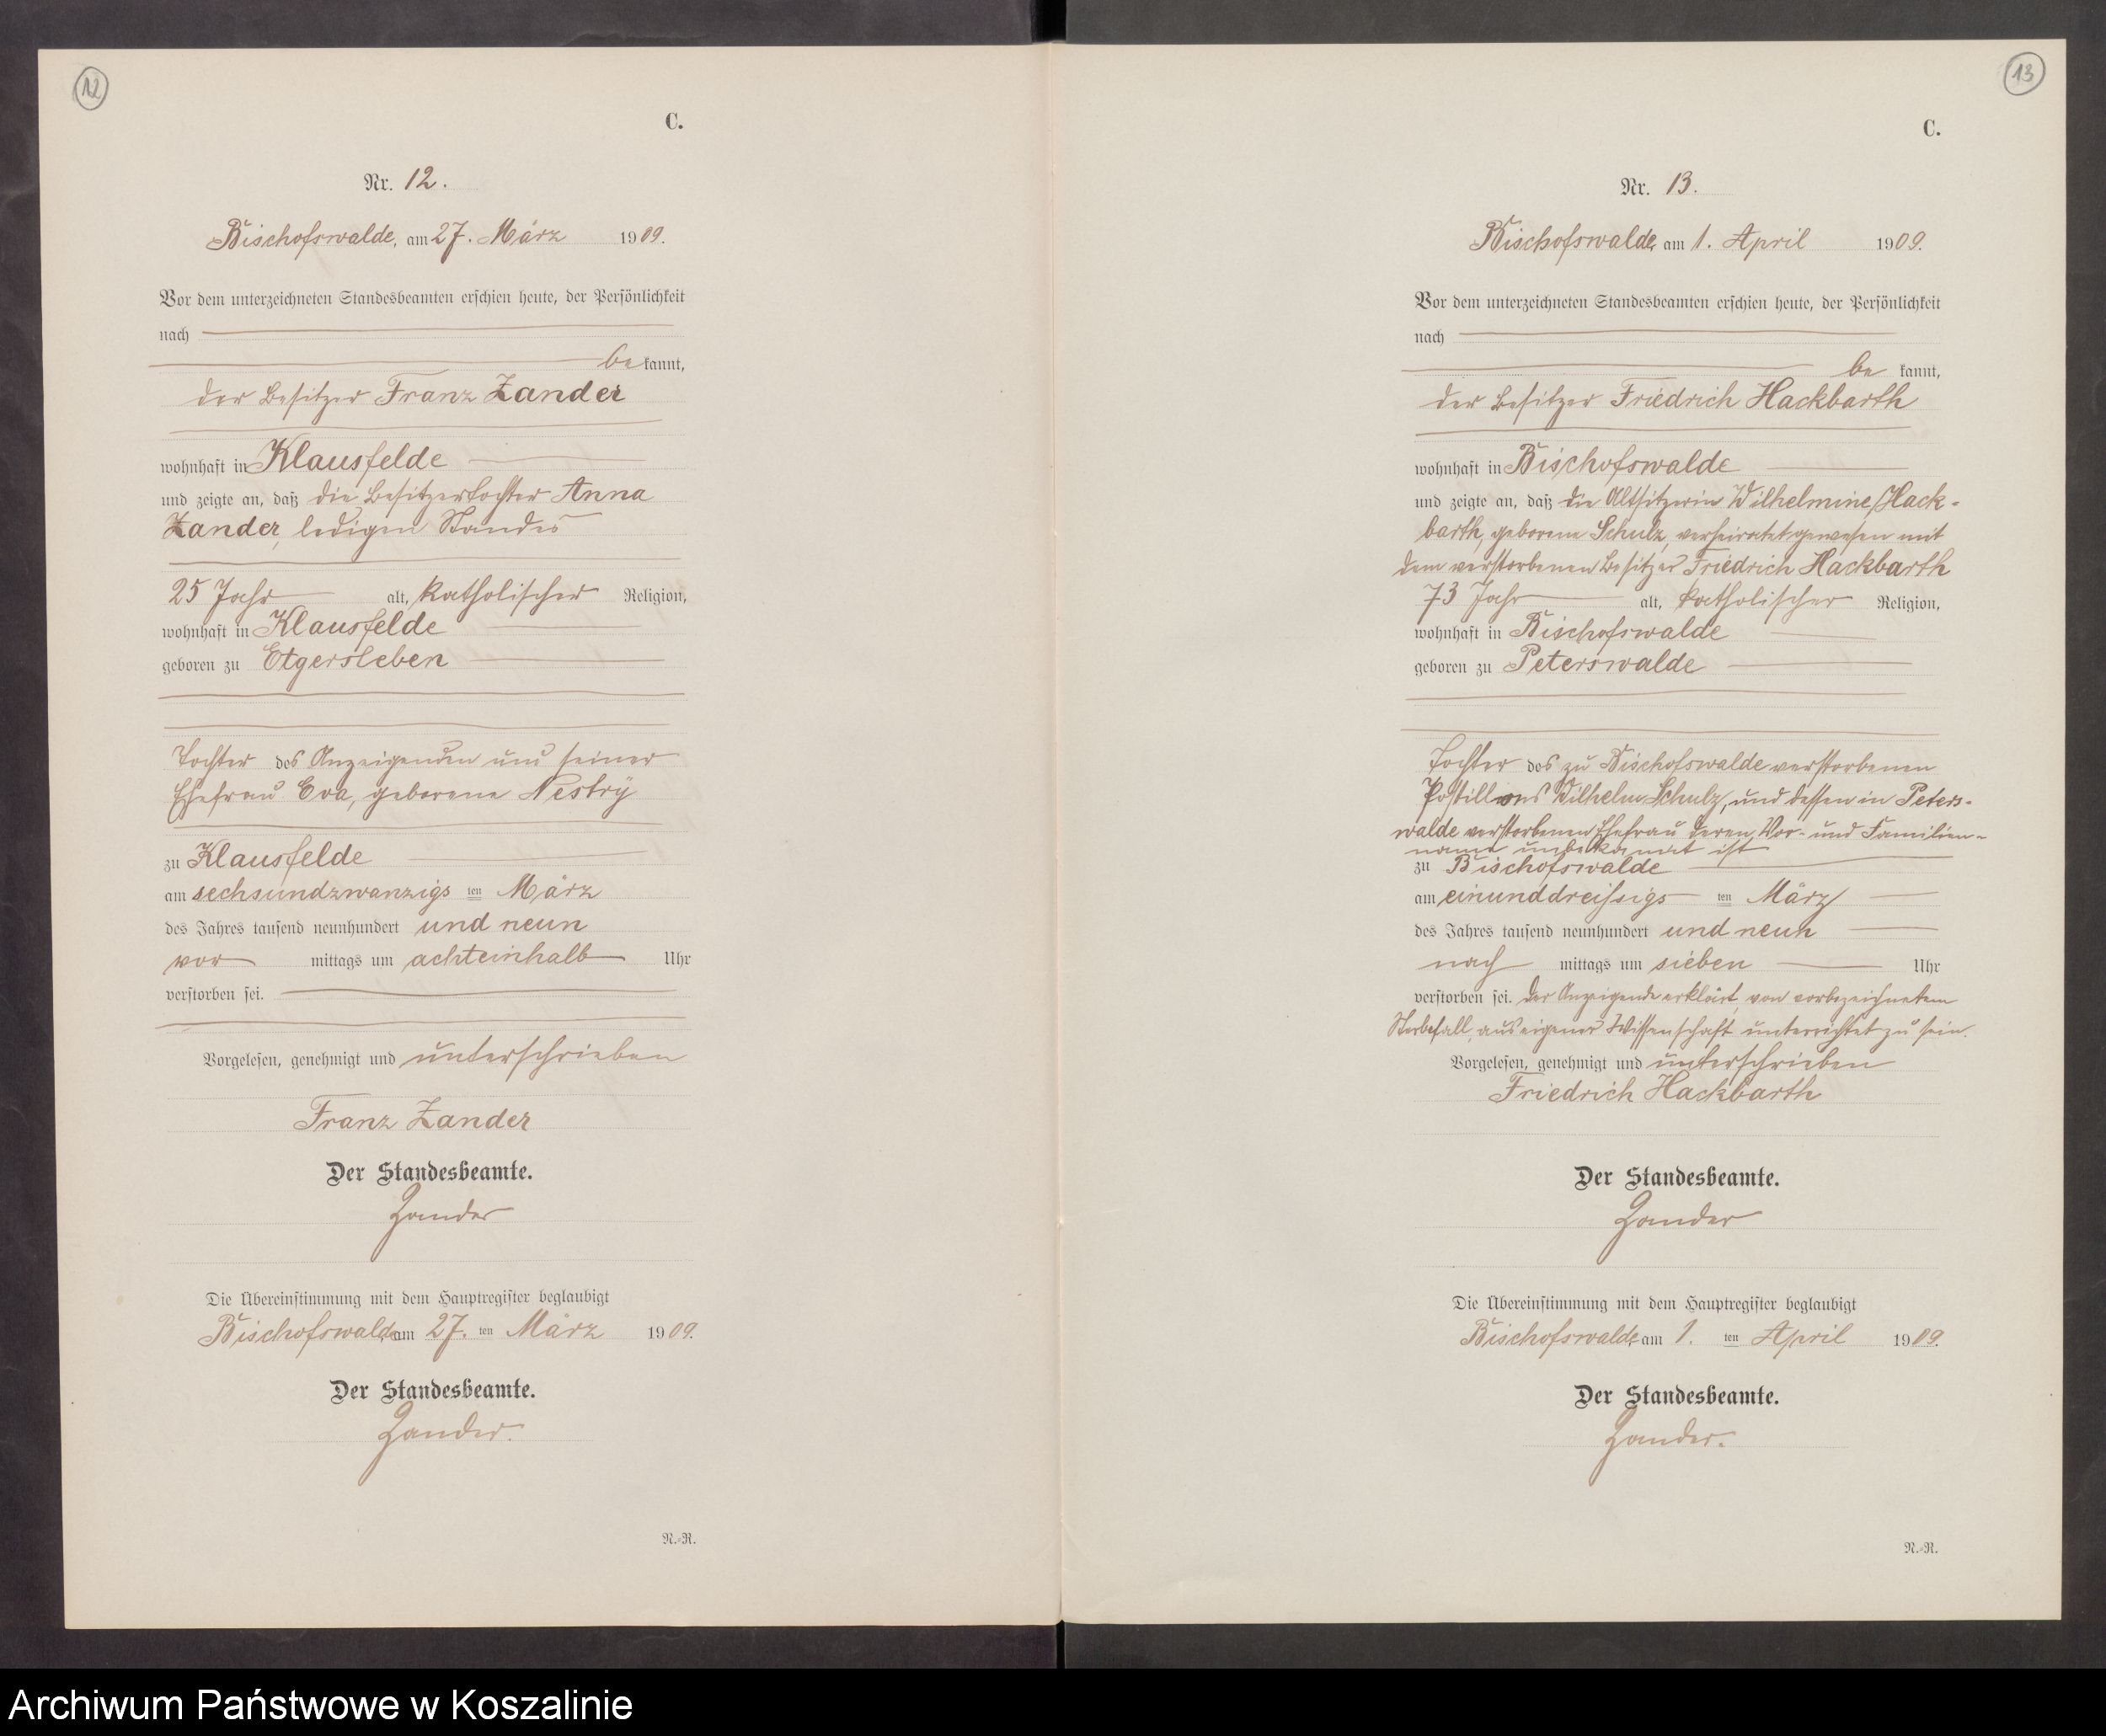 12
C.
Nr. 12.
Bischofswalde, am 27. März 1909.
Vor dem unterzeichneten Standesbeamten erschien heute, der Persönlichkeit
nach
be kannt,
der Besitzer Franz Zander
wohnhaft in Klausfelde
und zeigte an, daß die Besitzertochter Anna
Zander, ledigen Standes
25 Jahr alt, katholischer Religion,
wohnhaft in Klausfelde
geboren zu Etgersleben
Tochter des Anzeigenden und seiner
Ehefrau Eva, geborene Nestry
zu Klausfelde
am sechsundzwanzigs ten März
des Jahres tausend neunhundert und neun
vor mittags um achteinhalb Uhr
verstorben sei.
Vorgelesen, genehmigt und unterschrieben
Franz Zander
Der Standesbeamte.
Zander
Die Übereinstimmung mit dem Hauptregister beglaubigt
Bischofswalde am 27. ten März 1909.
Der Standesbeamte.
Zander.
N.-R.
13
C.
Nr. 13.
Bischofswalde, am 1. April 1909.
Vor dem unterzeichneten Standesbeamten erschien heute, der Persönlichkeit
nach
be kannt,
der Besitzer Friedrich Hackbarth
wohnhaft in Bischofswalde
und zeigte an, daß die Altsitzerin Wilhelmine Hack-
barth, geborene Schulz, verheiratet gewesen mit
dem verstorbenen Besitzer Friedrich Hackbarth
73 Jahr alt, katholischer Religion,
wohnhaft in Bischofswalde
geboren zu Peterswalde
Tochter des zu Bischofswalde verstorbenen
Postillons Wilhelm Schulz, und dessen in Peters-
walde verstorbenen Ehefrau deren Vor- und Familien-
name unbekannt ist
zu Bischofswalde
am einunddreißigs ten März
des Jahres tausend neunhundert und neun
nach mittags um sieben Uhr
verstorben sei. Der Anzeigende erklärt, von vorbezeichnetem
Sterbefall aus eigener Wissenschaft unterrichtet zu sein.
Vorgelesen, genehmigt und unterschrieben
Friedrich Hackbarth
Der Standesbeamte.
Zander
Die Übereinstimmung mit dem Hauptregister beglaubigt
Bischofswalde, am 1. ten April 1909.
Der Standesbeamte.
Zander.
N.-R.
Archiwum Państwowe w Koszalinie